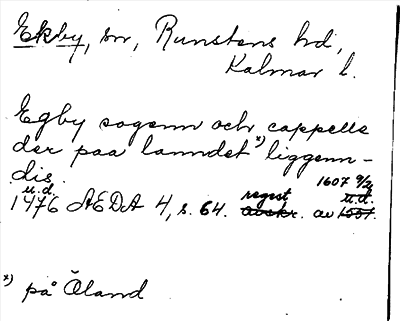 Ekby, sn, Runstens hd,
Kalmar l.
Egby sogenn och cappelle
der paa lanndet x) liggenn-
dis.
u.d. regest 1607 9/2
1476 AEDA 4, s. 64. avskr. av u.d.
x) på Öland